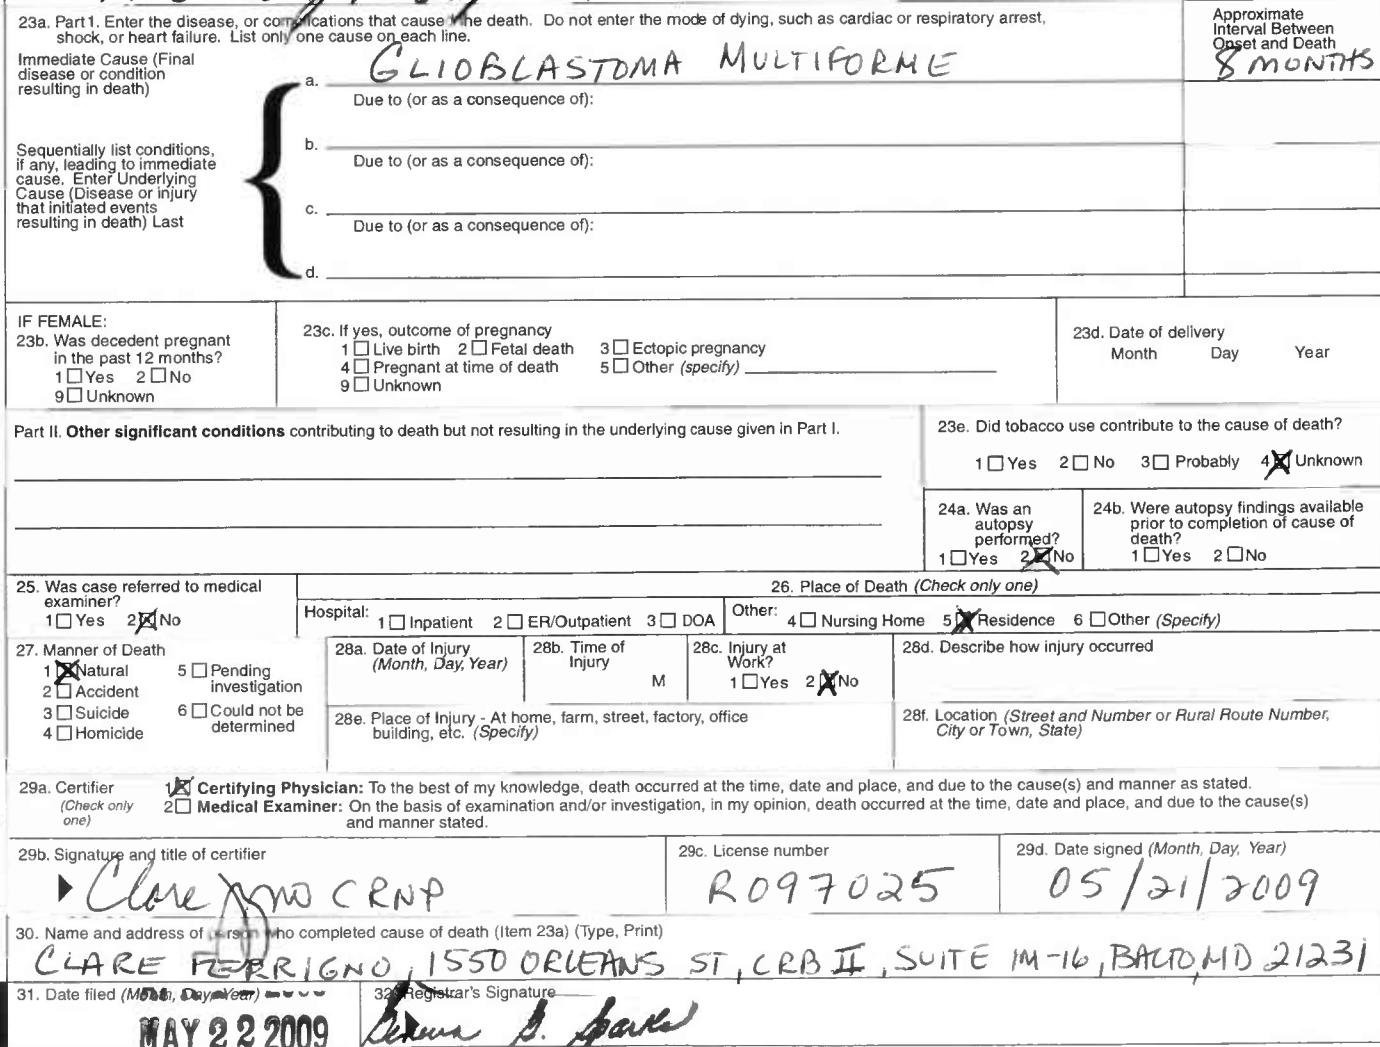 23a. Part 1. Enter the disease, or complications that cause the death. Do not enter the mode of dying, such as cardiac or respiratory arrest,
shock, or heart failure. List only one cause on each line.
Approximate
Interval Between
Onset and Death
Immediate Cause (Final
disease or condition
resulting in death)
a. GLIOBLASTOMA MULTIFORME 8 MONTHS
Due to (or as a consequence of):
Sequentially list conditions,
if any, leading to immediate
cause. Enter Underlying
Cause (Disease or injury
that initiated events
resulting in death) Last
b.
Due to (or as a consequence of):
c.
Due to (or as a consequence of):
d.
IF FEMALE:
23b. Was decedent pregnant
in the past 12 months?
1 Yes 2 No
9 Unknown
23c. If yes, outcome of pregnancy
1 Live birth 2 Fetal death 3 Ectopic pregnancy
4 Pregnant at time of death 5 Other (specify)
9 Unknown
23d. Date of delivery
Month Day Year
Part II. Other significant conditions contributing to death but not resulting in the underlying cause given in Part I.
23e. Did tobacco use contribute to the cause of death?
1 Yes 2 No 3 Probably 4 Unknown
24a. Was an
autopsy
performed?
1 Yes 2 No
24b. Were autopsy findings available
prior to completion of cause of
death?
1 Yes 2 No
25. Was case referred to medical
examiner?
1 Yes 2 No
26. Place of Death (Check only one)
Hospital: 1 Inpatient 2 ER/Outpatient 3 DOA Other: 4 Nursing Home 5 Residence 6 Other (Specify)
27. Manner of Death
1 Natural 5 Pending
investigation
2 Accident
3 Suicide 6 Could not be
determined
4 Homicide
28a. Date of Injury
(Month, Day, Year)
28b. Time of
Injury
M
28c. Injury at
Work?
1 Yes 2 No
28d. Describe how injury occurred
28e. Place of Injury - At home, farm, street, factory, office
building, etc. (Specify)
28f. Location (Street and Number or Rural Route Number,
City or Town, State)
29a. Certifier
(Check only
one)
1 Certifying Physician: To the best of my knowledge, death occurred at the time, date and place, and due to the cause(s) and manner as stated.
2 Medical Examiner: On the basis of examination and/or investigation, in my opinion, death occurred at the time, date and place, and due to the cause(s)
and manner stated.
29b. Signature and title of certifier
Clare CRNP
29c. License number
R097025
29d. Date signed (Month, Day, Year)
05/21/2009
30. Name and address of person who completed cause of death (Item 23a) (Type, Print)
CLARE FERRIGNO, 1550 ORLEANS ST, CRB II, SUITE 1M-16, BALTO, MD 21231
31. Date filed (Month, Day, Year)
MAY 22 2009
32. Registrar's Signature
Sparks